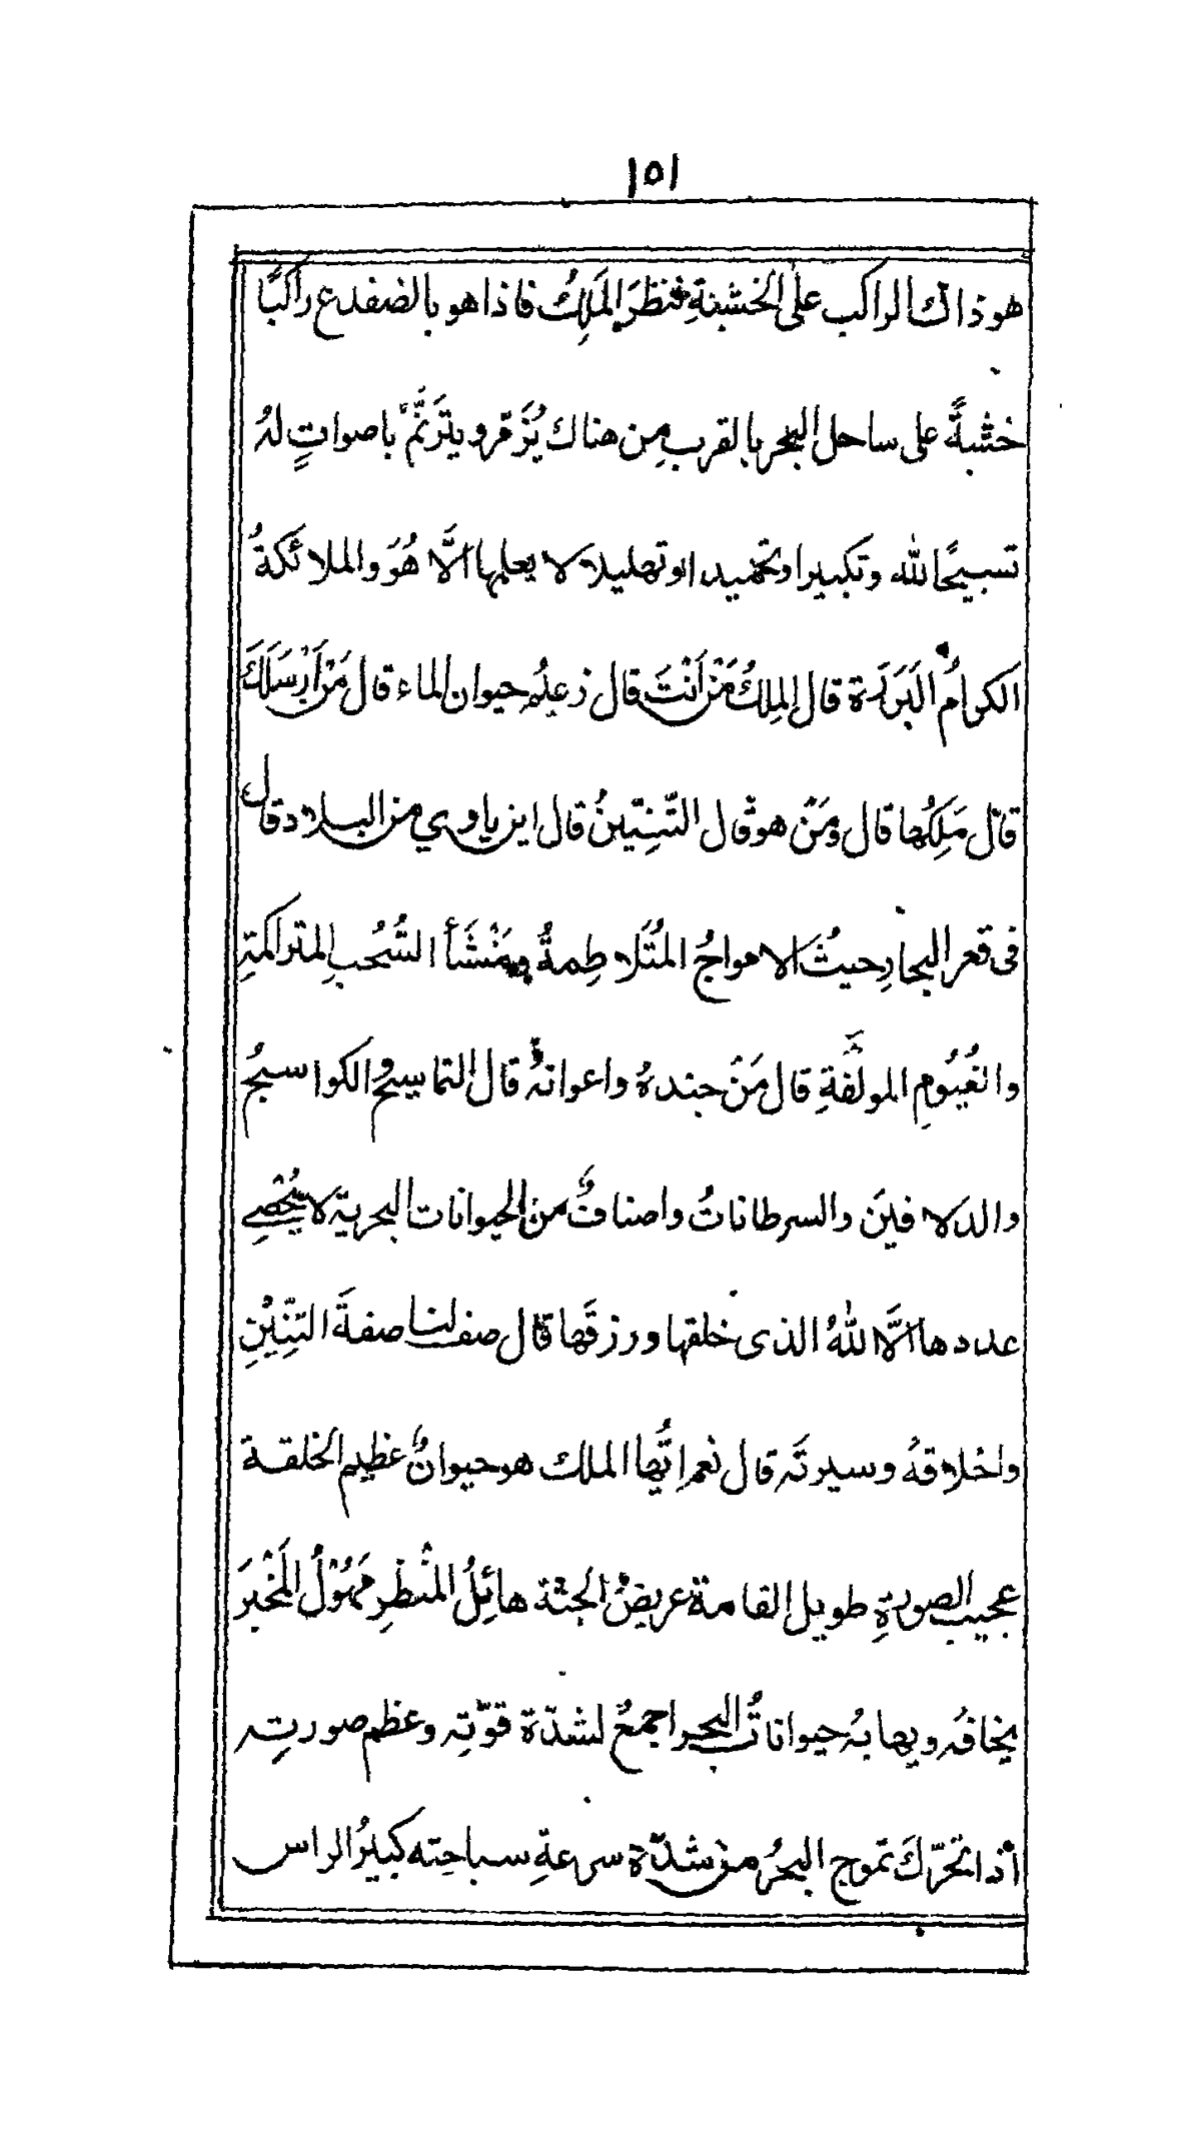 ١٥١
هو ذاك الراكب على الخشبةِ فنظرَ المَلِكُ فاذا هو بالضفدع راكبًا
خشبةً على ساحل البحر بالقرب مِن هناك يُزَمّرو يترَنَّمُ باصواتٍ لهُ
تسبيحًا لله وتكبيرا وتحميدا وتهليلا لا يعلمها الَّا هُوَ والملائكةُ
الكرامُ البَرَرَة قال المِلكُ مَنْ اَنْتَ قال زعيمُ حيوان الماء قال مَنْ اَرْسَلَكَ
قال مَلِكُها قال ومَنْ هو قال التّنِيّنُ قال اين ياوي من البلاد قال
فى قعر البحارِ حيثُ الامواجُ المُتَلاطِمةُ ومَنْشَأ السُّحُبِ المتراكمةِ
والغُيُومِ المولَّفةِ قال مَنْ جندهُ واعوانهُ قال التماسيحُ والكواسجُ
والدلافينَ والسرطاناتُ واصنافٌ من الحيوانات البحرية لا يُحْصِے
عددها الَّا اللهُ الذى خلقها ورزقَها قال صف لنا صفةَ التنِّيْنِ
واخلاقهُ وسيرتَه قال نعم اَيُّها الملك هو حيوانٌ عظيم الخلقة
عجيب الصورةِ طويل القامة عريضُ الجثة هائِلُ المنْظَرِ مَهُوْلُ المَخْبَرَ
يخافهُ ويهابهُ حيواناتُ البحر اجمعُ لشدّة قوّتِه وعظم صورتِه
اذا تحرّكَ تموج البحرُ من شدّة سرعةِ سباحته كبيرُ الراس